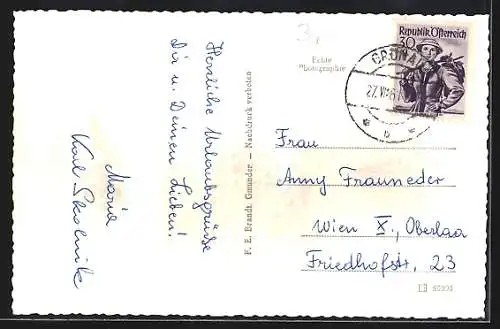 3,
Echte
Photographie
Republik Österreich
30
GRÜNAU
27.VII.6
Herzliche Urlaubsgrüße
Dir u. Deinen Lieben!
Maria
Karl Skolnik
F. E. Brandt, Gmunden — Nachdruck verboten
Frau
Anny Frauneder
Wien X., Oberlaa
Friedhofstr. 23